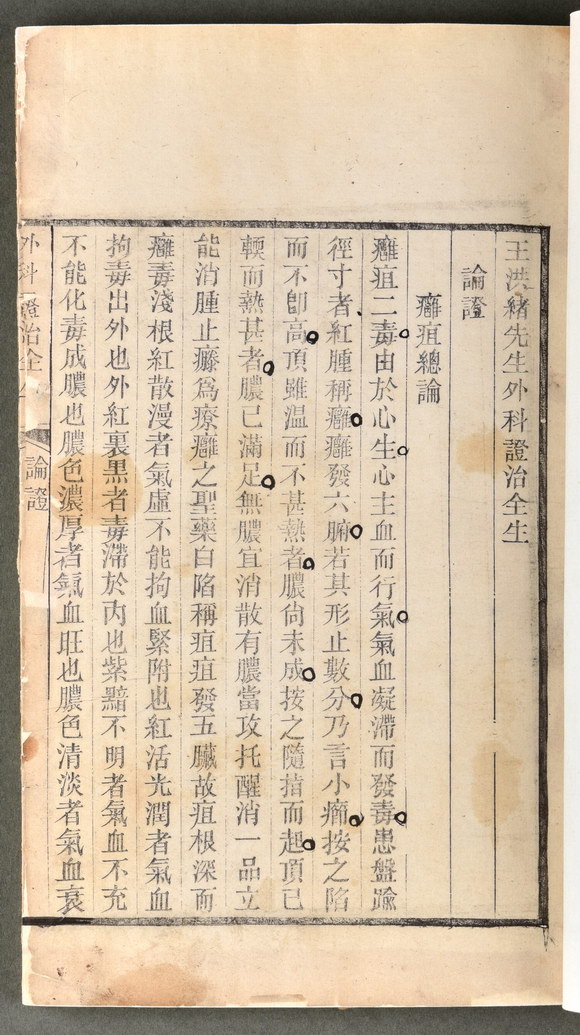 王洪緒先生外科證治全生
論證
癰疽總論
癰疽二毒由於心生心主血而行氣氣血凝滯而發毒患盤踰
徑寸者紅腫稱癰癰發六腑若其形止數分乃言小癤按之陷
而不卽高頂雖温而不甚熱者膿尙未成按之隨指而起頂已
輭而熱甚者膿已滿足無膿宜消散有膿當攻托醒消一品立
能消腫止疼爲療癰之聖藥白陷稱疽疽發五臟故疽根深而
癰毒淺根紅散漫者氣虛不能拘血緊附也紅活光潤者氣血
拘毒出外也外紅裏黒者毒滯於內也紫黯不明者氣血不充
不能化毒成膿也膿色濃厚者氣血旺也膿色清淡者氣血衰
外科證治全
論證